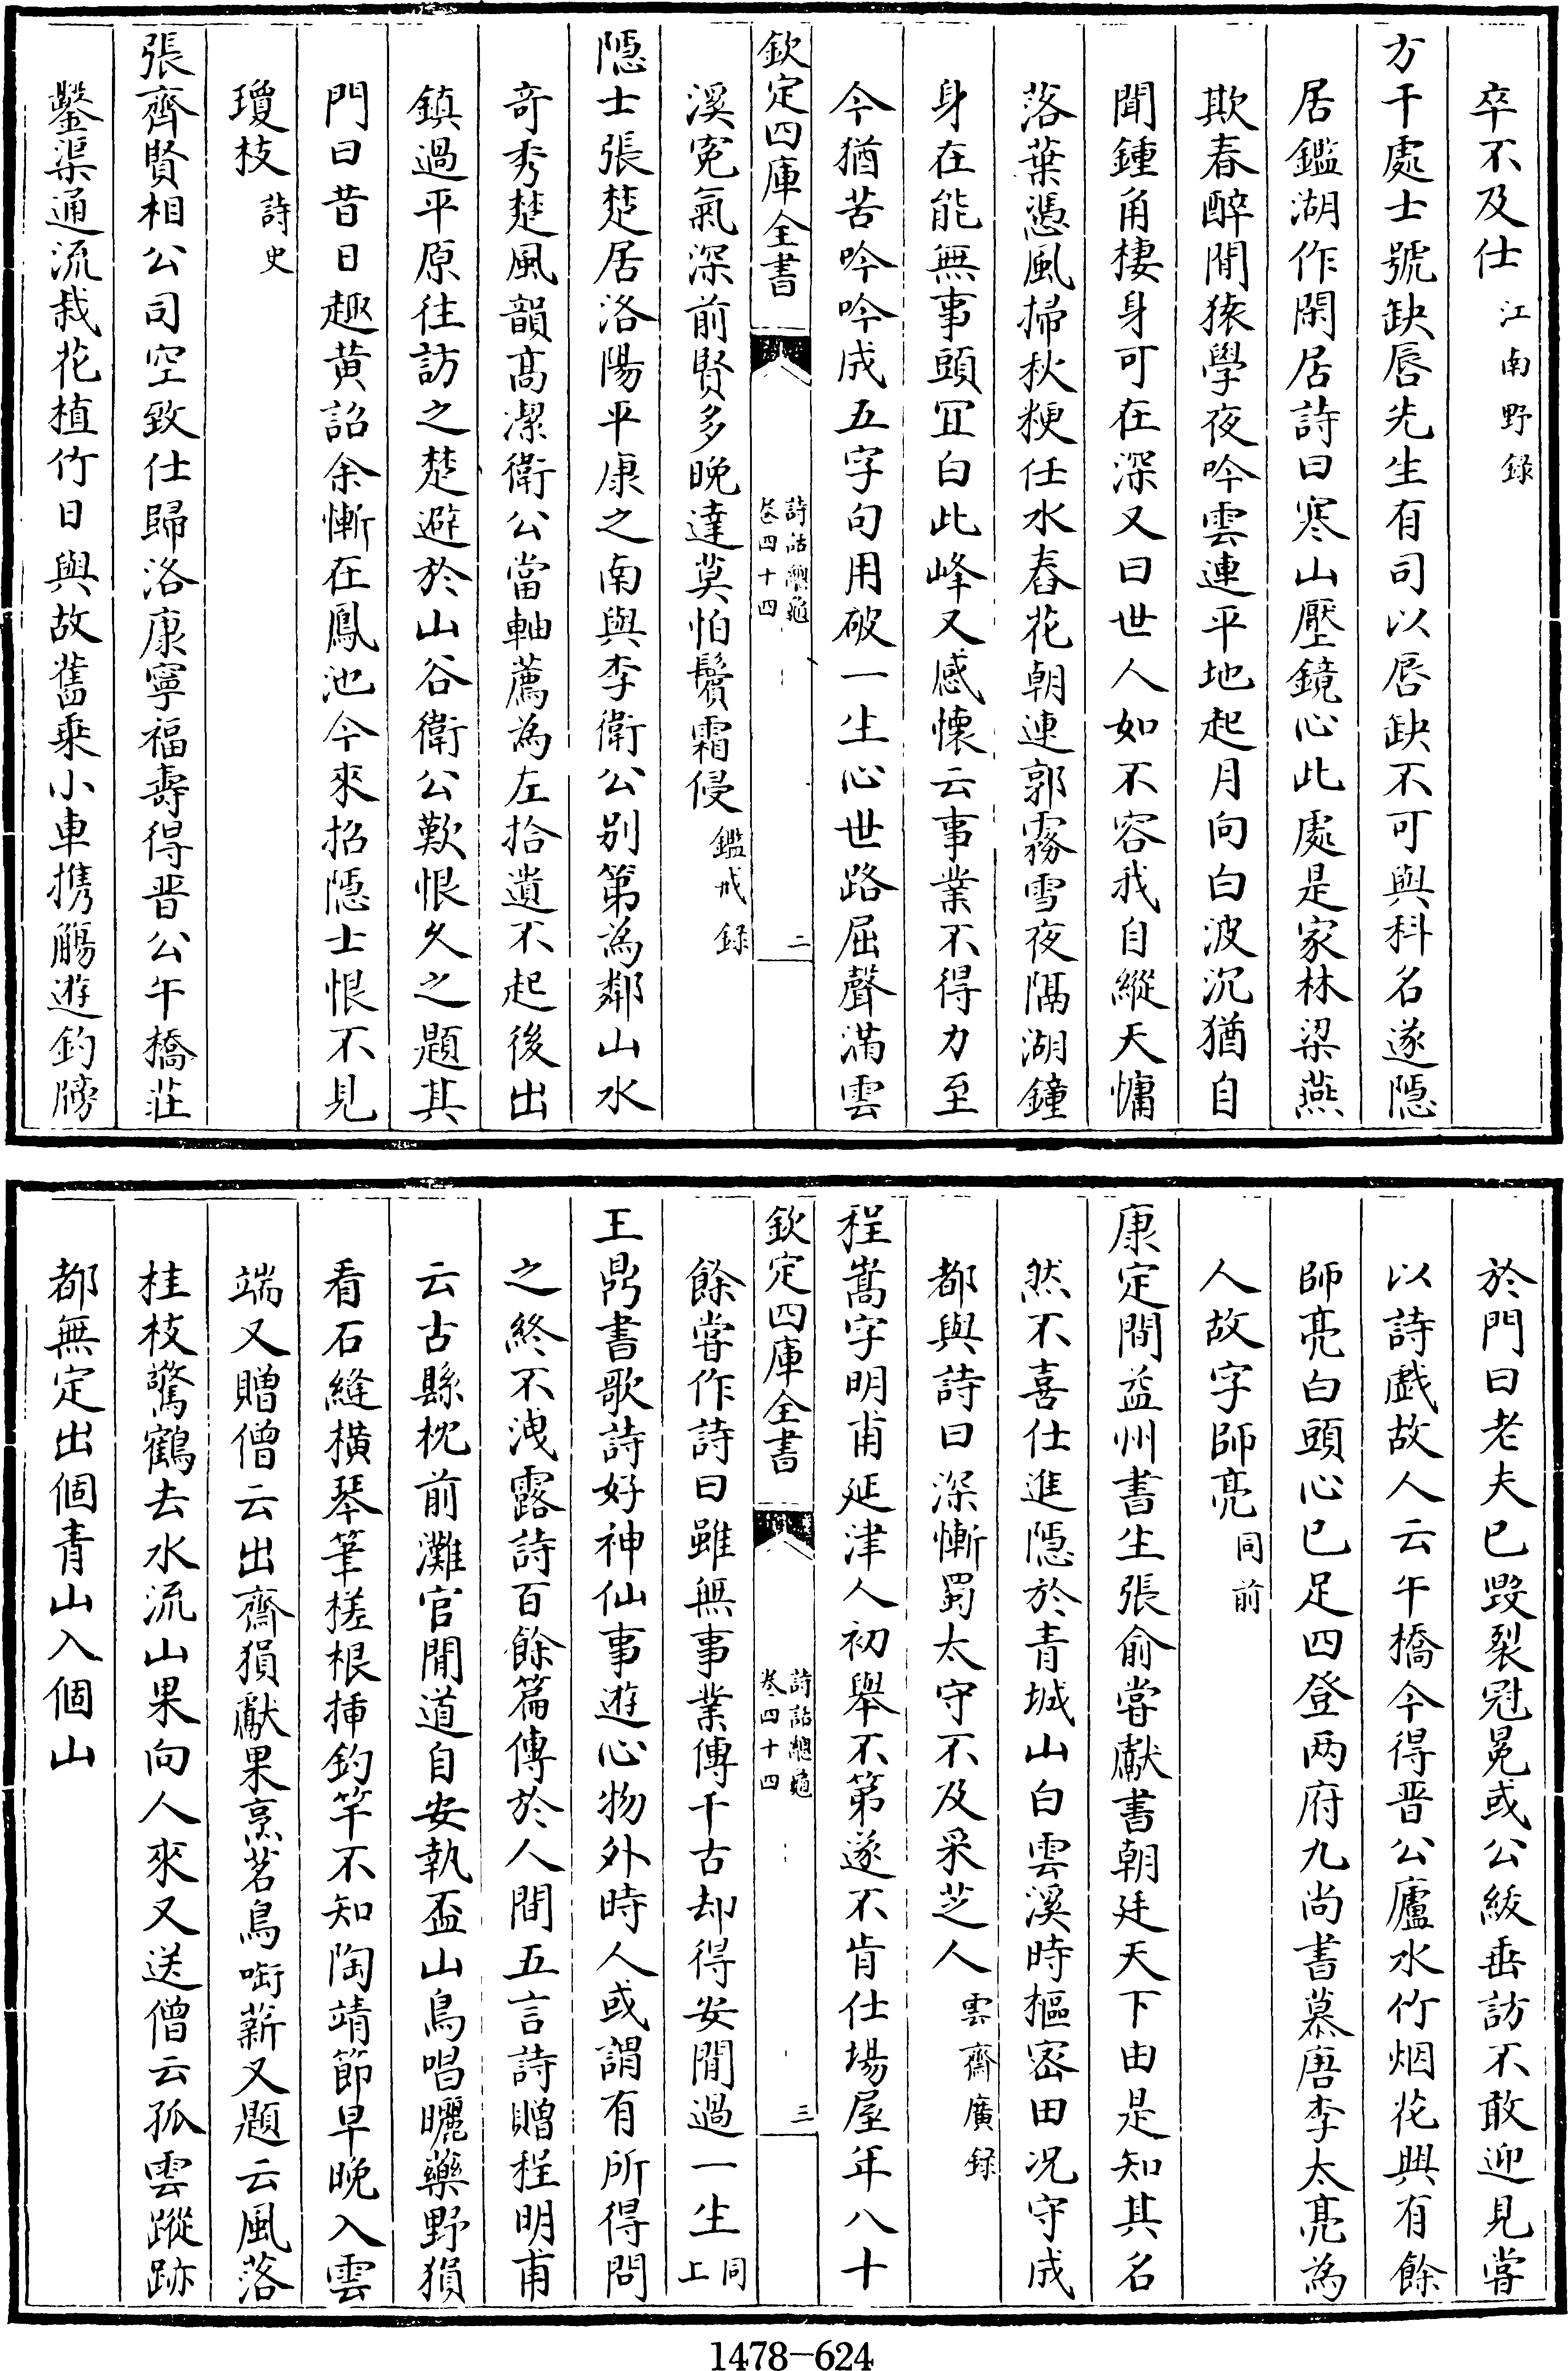 卒不及仕江南野録
方干處士號缺唇先生有司以唇缺不可與科名遂隱
居鑑湖作閑居詩曰寒山壓鏡心此處是家林梁燕
欺春醉閒猿學夜吟雲連平地起月向白波沉猶自
聞鍾角棲身可在深又曰世人如不容我自縱天慵
落葉憑風掃秋粳任水舂花朝連郭霧雪夜隔湖鐘
身在能無事頭冝白此峰又感懐云事業不得力至
今猶苦吟吟成五字句用破一生心世路屈聲滿雲
欽定四庫全書
詩話總龜
卷四十四
二
溪寃氣深前賢多晚達莫怕鬢霜侵鑑戒録
隱士張楚居洛陽平康之南與李衛公别第為鄰山水
竒秀楚風韻髙潔衛公當軸薦為左拾遺不起後出
鎮過平原往訪之楚避於山谷衛公歎恨久之題其
門曰昔日趣黄詔余慚在鳳池今來招隱士恨不見
瓊枝詩史
張齊賢相公司空致仕歸洛康寧福壽得晋公午橋莊
鑿渠通流栽花植竹日與故舊乘小車携觴遊釣牓
於門曰老夫已毁裂冠冕或公紱垂訪不敢迎見嘗
以詩戯故人云午橋今得晋公廬水竹烟花興有餘
師亮白頭心已足四登两府九尚書慕唐李太亮為
人故字師亮同前
康定間益州書生張俞嘗獻書朝廷天下由是知其名
然不喜仕進隱於青城山白雲溪時樞密田况守成
都與詩曰深慚蜀太守不及采芝人雲齋廣録
程嵩字明甫延津人初舉不第遂不肯仕場屋年八十
欽定四庫全書
詩話總龜
卷四十四
三
餘嘗作詩曰雖無事業傳千古却得安閒過一生同上
王鼎書歌詩好神仙事遊心物外時人或謂有所得問
之終不洩露詩百餘篇傳於人間五言詩贈程明甫
云古縣枕前灘官閒道自安執盃山鳥唱曬藥野猿
看石縫横琴筆槎根揷釣竿不知陶靖節早晚入雲
端又贈僧云出齋猿獻果烹茗鳥㗸薪又題云風落
桂枝驚鶴去水流山果向人來又送僧云孤雲蹤跡
都無定出個青山入個山
1478-624